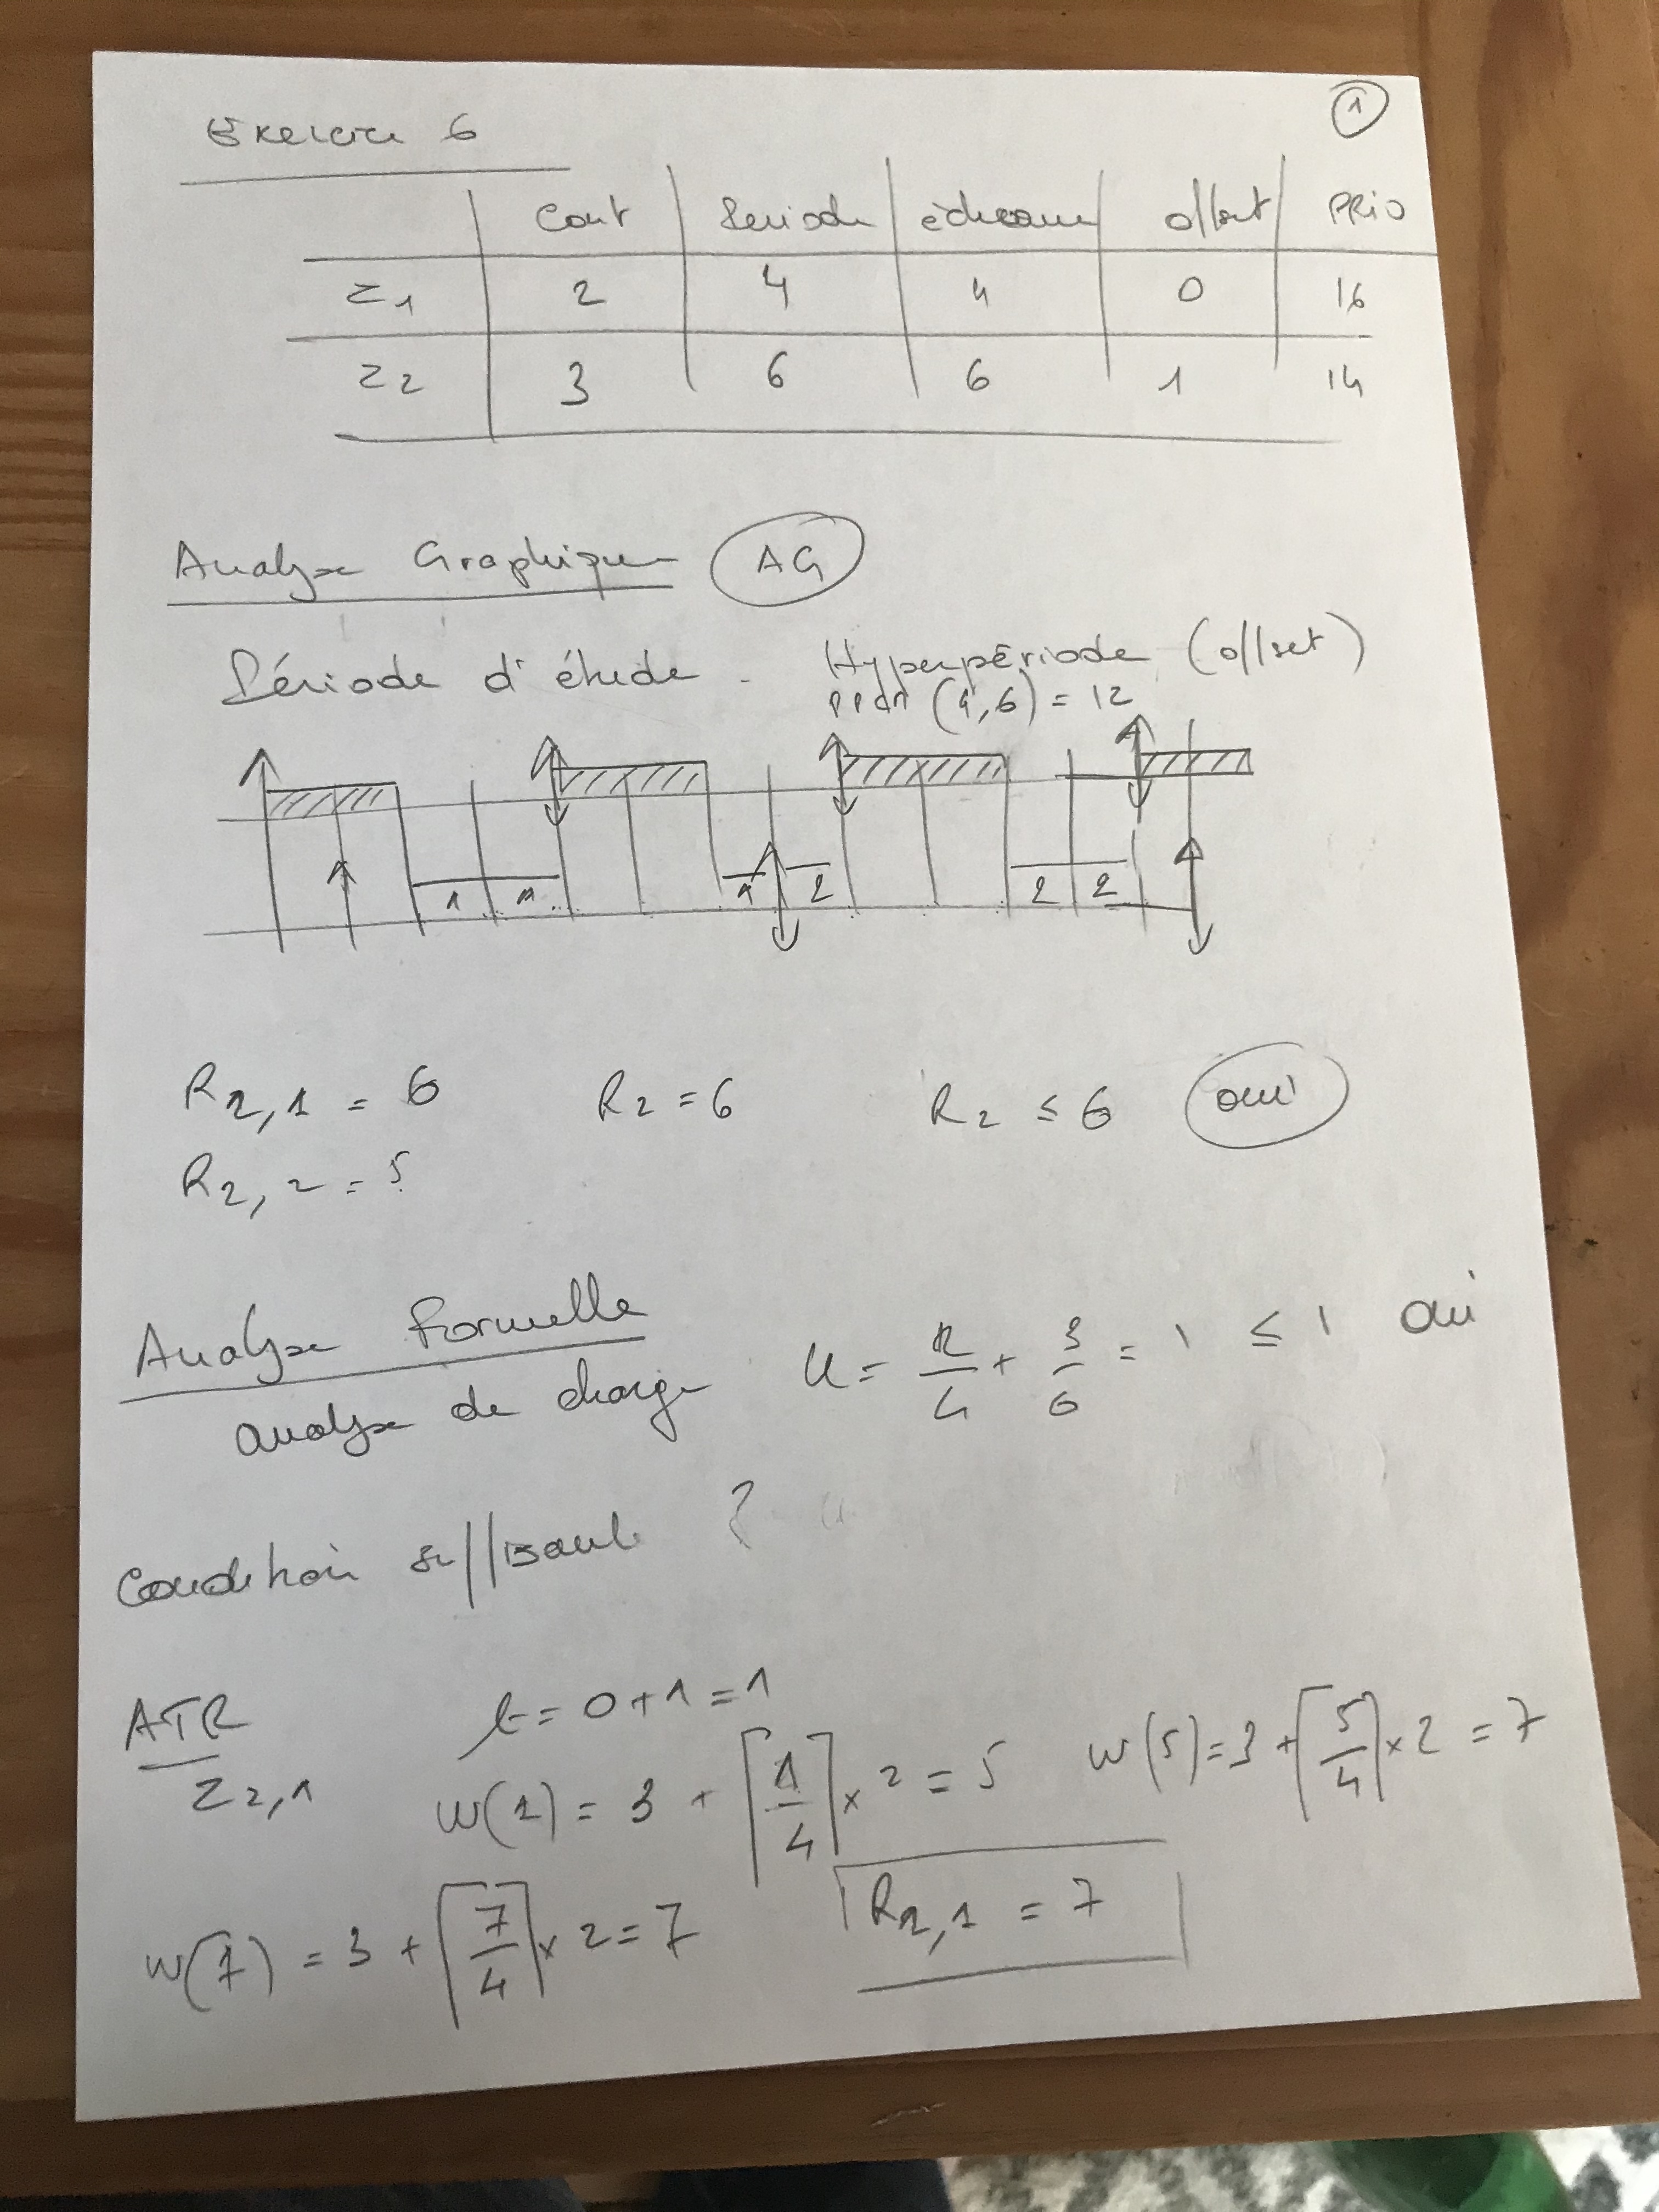 ①
Exercice 6
Cout Période échéance offset PRIO
Z1 2 4 4 0 16
Z2 3 6 6 1 14
Analyse Graphique AG
Période d'étude. Hyperpériode (offset)
PPCM (4,6) = 12
1 1 1 2 2 2
R2,1 = 6 R2 = 6 R2 ≤ 6 oui
R2,2 = 5
Analyse formelle
analyse de charge U = 2/4 + 3/6 = 1 ≤ 1 oui
Condition suffisante ?
ATR t = 0+1 = 1
Z2,1 W(1) = 3 + ⌈1/4⌉ × 2 = 5 W(5) = 3 + ⌈5/4⌉ × 2 = 7
W(7) = 3 + ⌈7/4⌉ × 2 = 7 R2,1 = 7